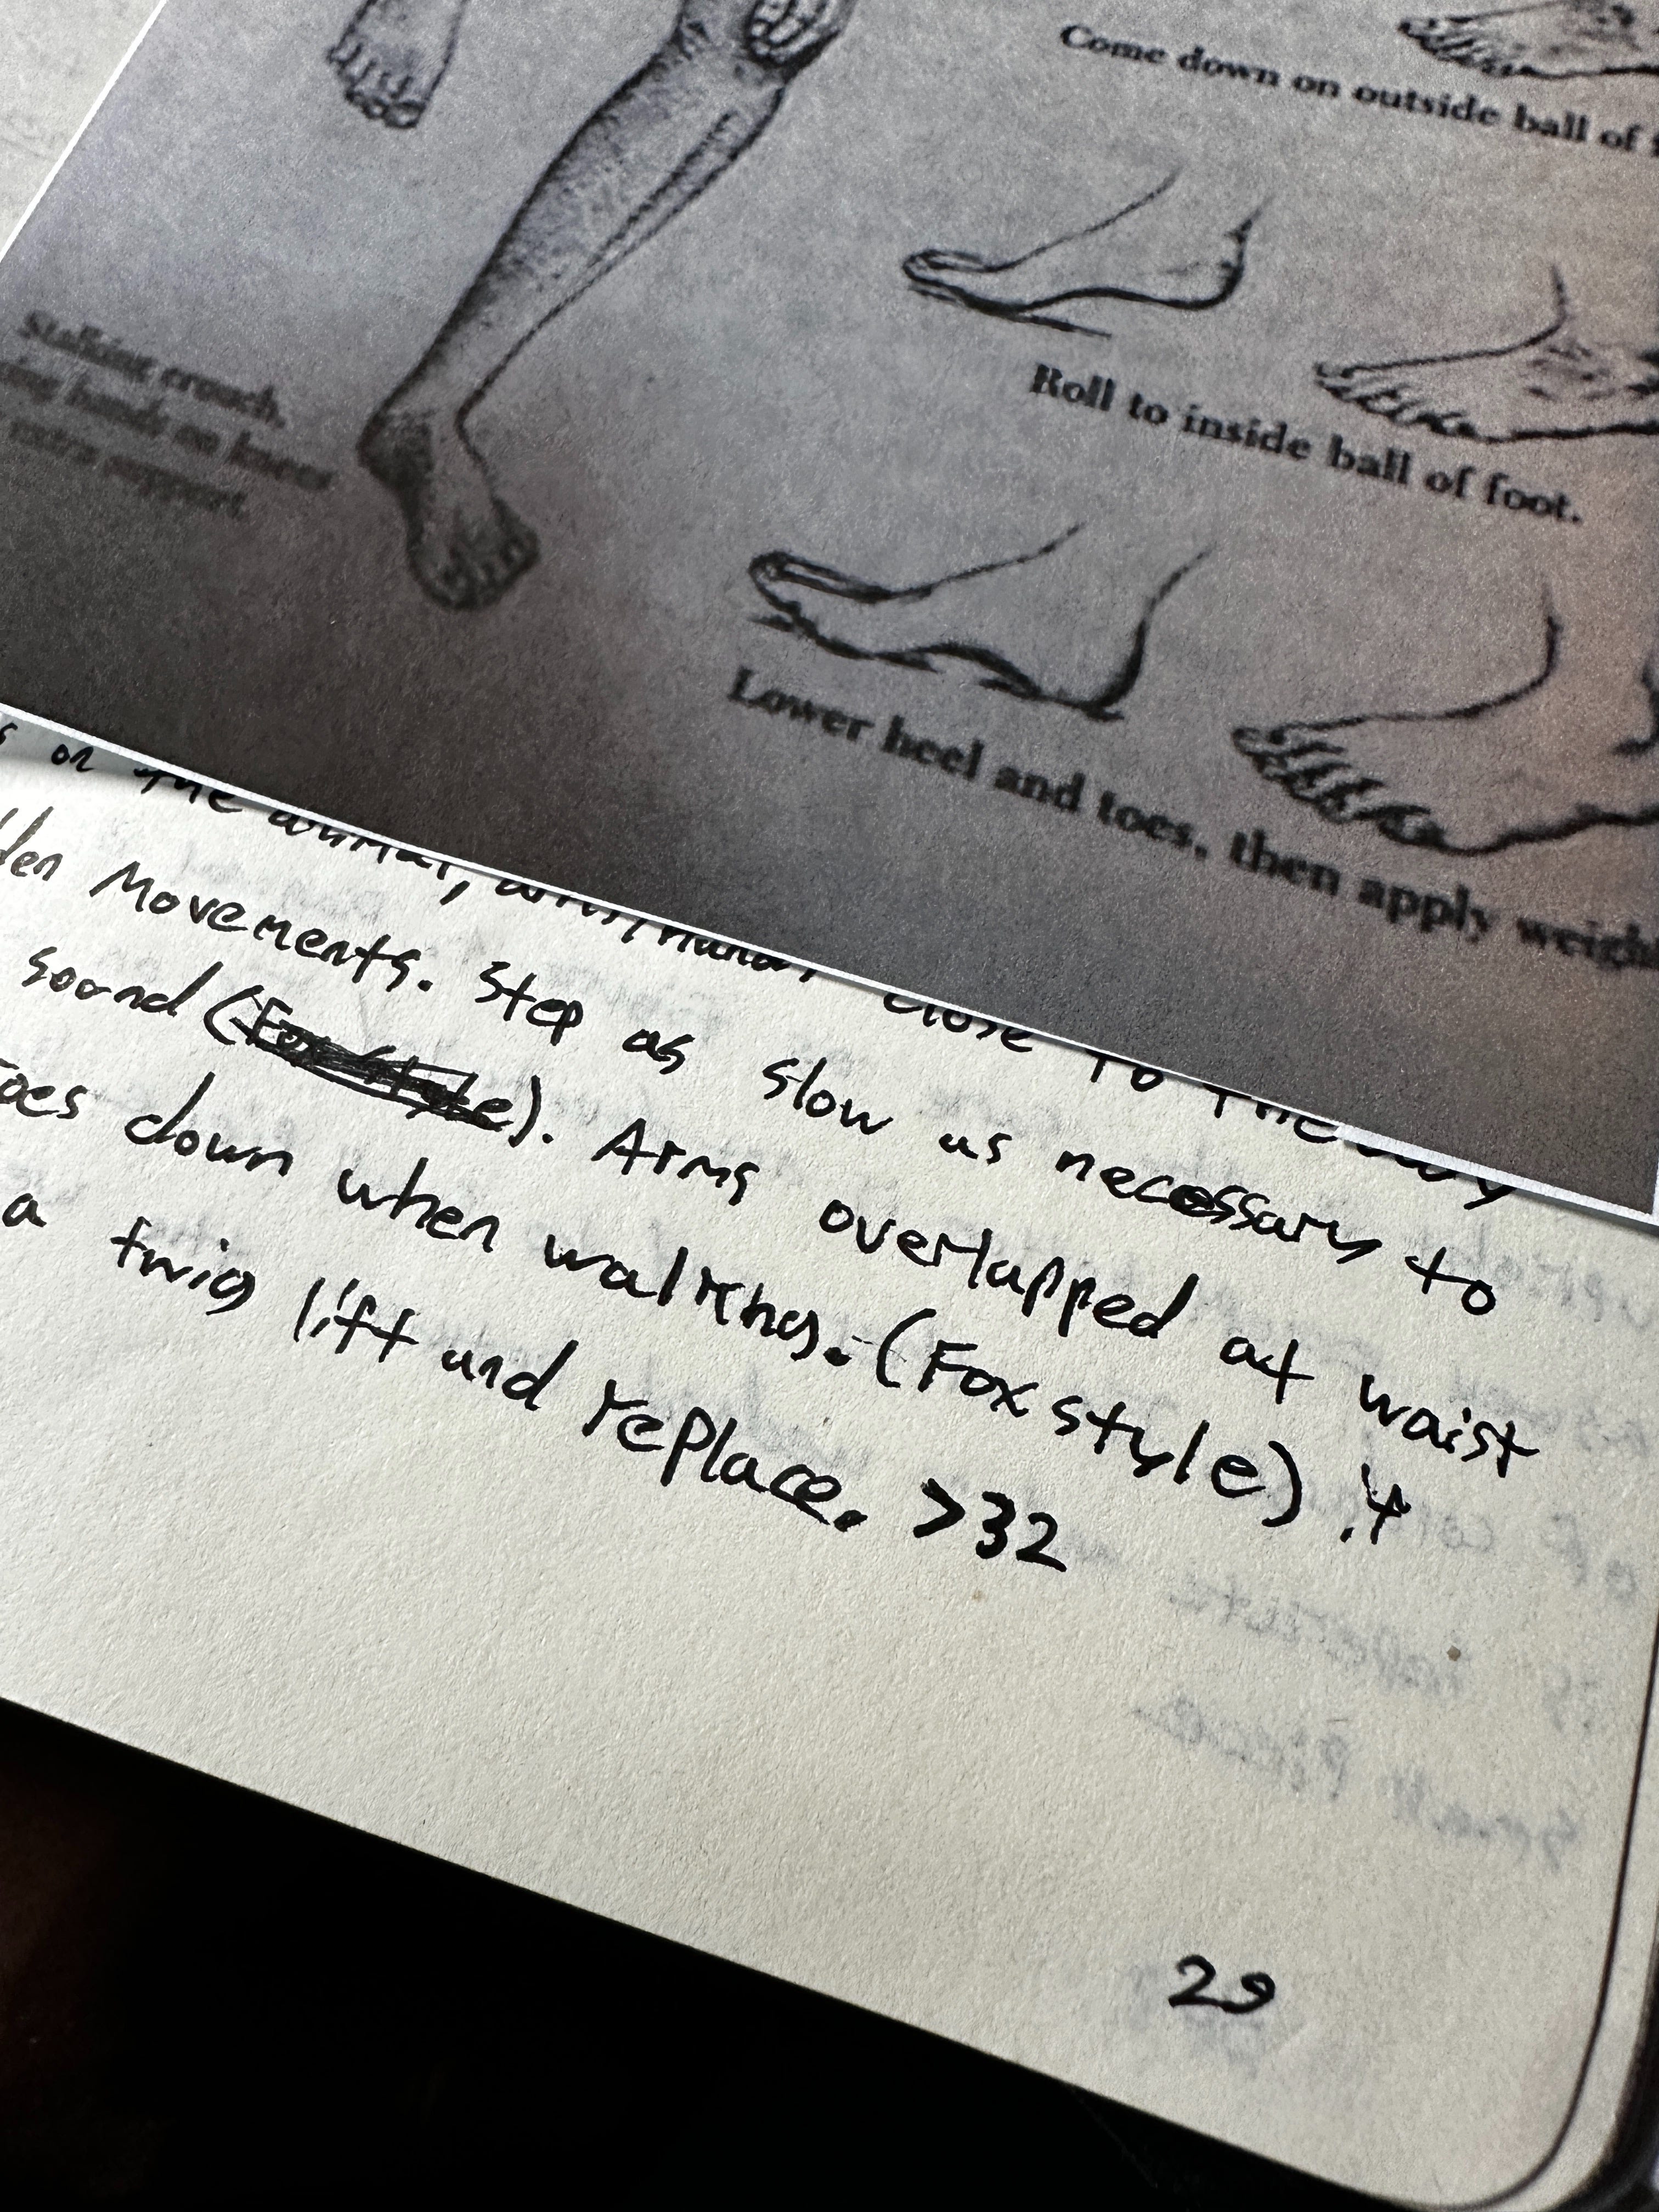 Come down on outside ball of
Roll to inside ball of foot.
Stalking crouch,
hands on knees
extra support.
Lower heel and toes, then apply weigh
on the animal, arms/hands close to the body
den Movements. Step as slow as necessary to
sound (Fox style). Arms overlapped at waist
oes down when walking. (Fox style).
a twig lift and replace. >32
29